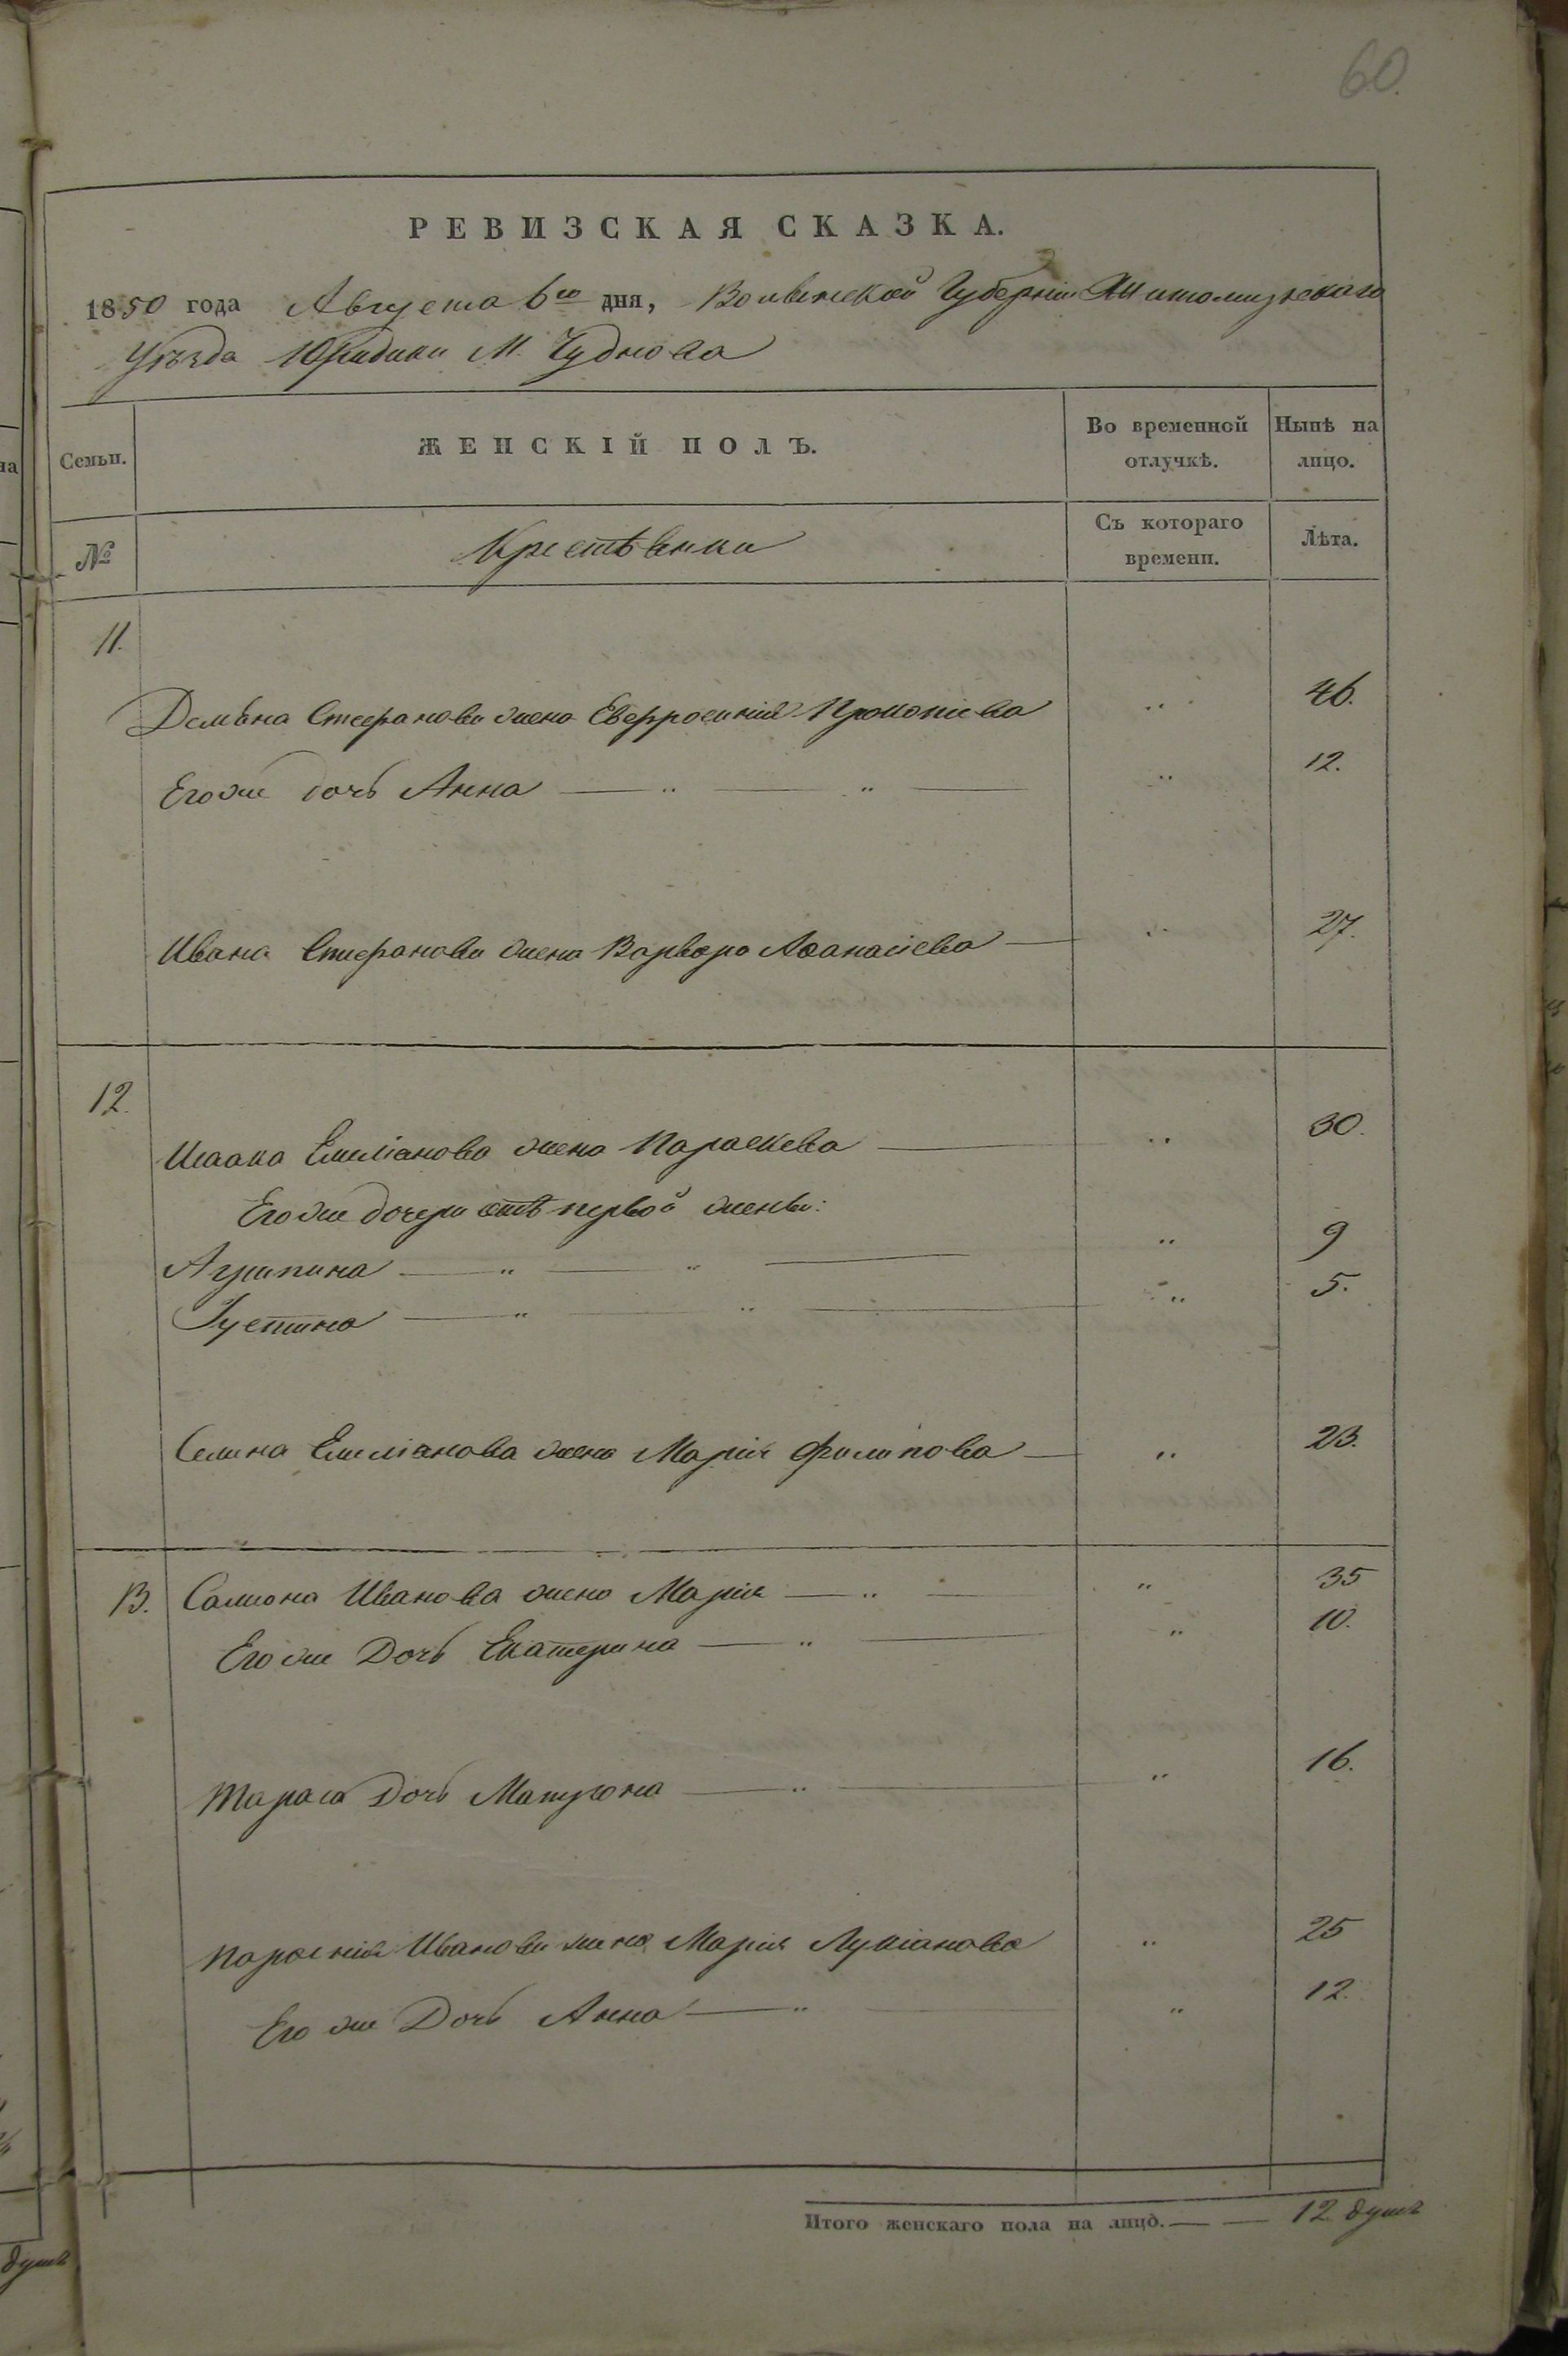 60.
РЕВИЗСКАЯ СКАЗКА.
1850 года Августа 6го дня, Волынской Губерніи Житомирскаго
Уѣзда Юридики М. Чуднова
Семьи. ЖЕНСКІЙ ПОЛЪ. Во временной отлучкѣ. Нынѣ на лицо.
№ Крестьянки Съ котораго времени. Лѣта.
11.
Демьяна Стефанова жена Евфросинія Прокопіева „ 46.
Егоже дочь Анна — „ — „ — „ 12.
Ивана Стефанова жена Варвара Аѳанасіева — „ 27.
12.
Исаака Емиліанова жена Параскева — „ 30.
Егоже дочери отъ первой жены:
Агрипина — „ — „ — „ 9
Іустина — „ — „ — „ 5.
Емиліанова жена Марія Филипова — „ 23.
13. Самсона Иванова жена Марія — „ — „ 35
Егоже Дочь Екатерина — „ — „ 10.
Тараса Дочь Матрона — „ — „ 16.
Иванова жена Марія Лукіанова „ 25
Его же Дочь Анна — „ — „ 12.
Итого женскаго пола на лицо. — — 12 душъ
душъ